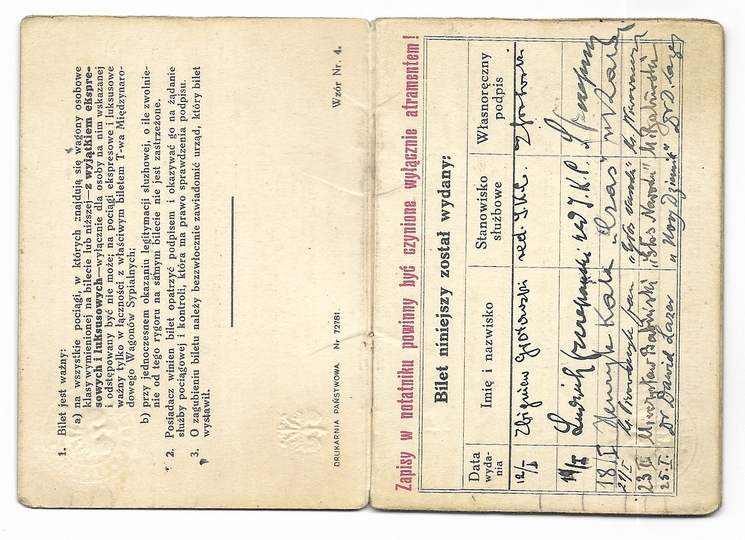 1. Bilet jest ważny:
a) na wszystkie pociągi, w których znajdują się wagony osobowe
klasy wymienionej na bilecie lub niższej—z wyjątkiem ekspre-
sowych i luksusowych—wyłącznie dla osoby na nim wskazanej
i odstępowany być nie może; na pociągi ekspresowe i luksusowe
ważny tylko w łączności z właściwym biletem T-wa Międzynaro-
dowego Wagonów Sypialnych;
b) przy jednoczesnem okazaniu legitymacji służbowej, o ile zwolnie-
nie od tego rygoru na samym bilecie nie jest zastrzeżone.
2. Posiadacz winien bilet opatrzyć podpisem i okazywać go na żądanie
służby pociągowej i kontroli, która ma prawo sprawdzenia podpisu.
3. O zagubieniu biletu należy bezzwłocznie zawiadomić urząd, który bilet
wystawił.
DRUKARNIA PAŃSTWOWA Nr 72781.
Wzór Nr. 4.
Zapisy w notatniku powinny być czynione wyłącznie atramentem!
Bilet niniejszy został wydany:
Data wyda-nia
Imię i nazwisko
Stanowisko służbowe
Własnoręczny podpis
12/I Zbigniew Grotowski red. I.K.C.
19/I Ludwik Szczepański red I.K.P.
18.I Henryk "Czas"
21/I Jan "Głos Narodu"
23 Mieczysław Babiński "Głos Narodu" M Babiński
25.I. Dr Dawid Lazer "Nowy Dziennik" Dr D. Lazer